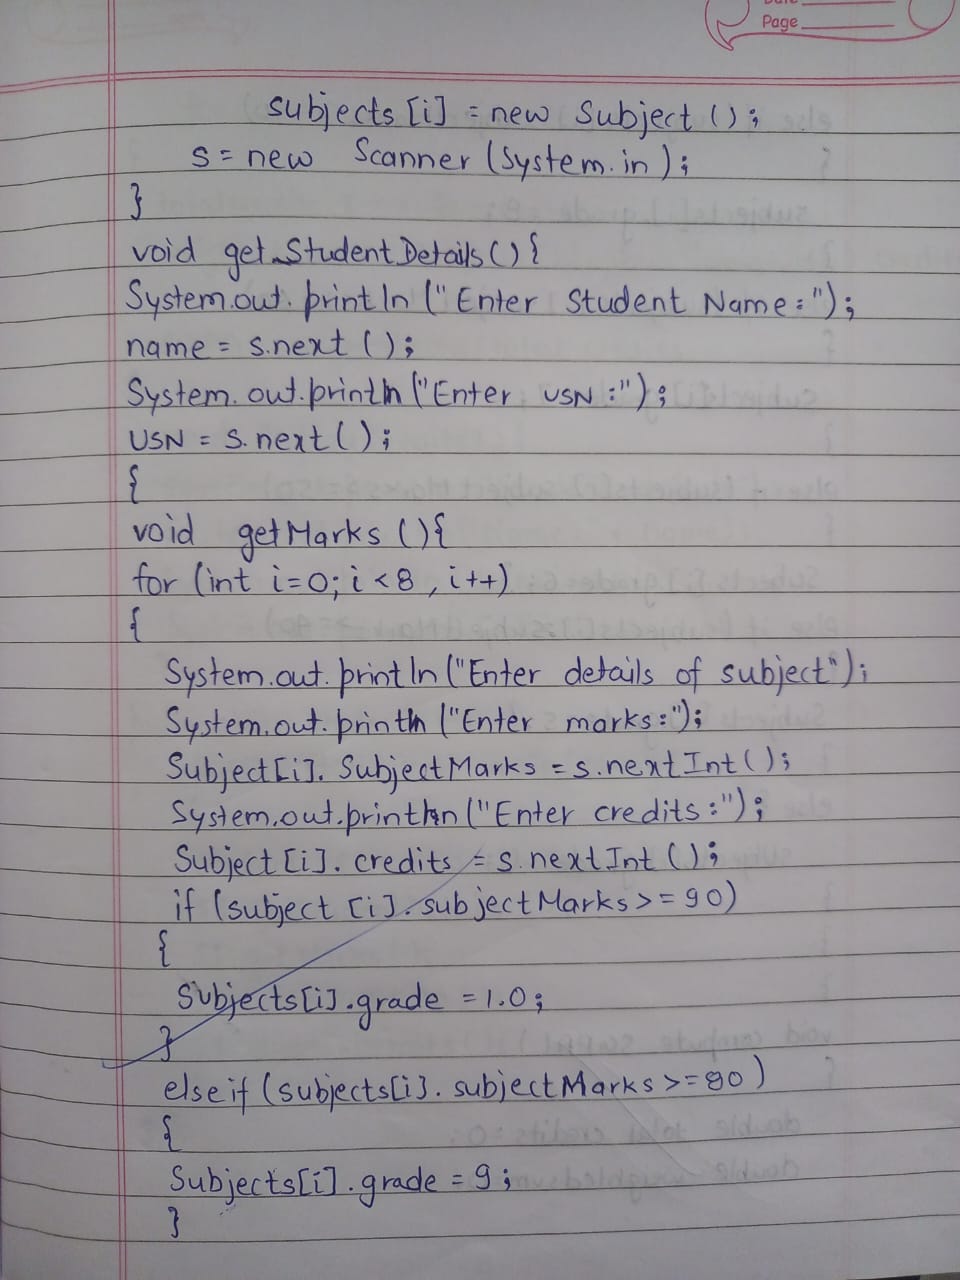 Page
subjects [i] = new Subject ();
s = new Scanner (System.in);
}
void get StudentDetails () {
System.out.println ("Enter Student Name:");
name = s.next ();
System.out.println ("Enter USN:");
USN = s.next ();
{
void getMarks () {
for (int i=0; i<8, i++)
{
System.out.println ("Enter details of subject");
System.out.println ("Enter marks:");
Subject[i]. SubjectMarks = s.nextInt ();
System.out.println ("Enter credits:");
Subject [i]. credits = s.nextInt ();
if (subject [i]. subjectMarks >= 90)
{
Subjects[i].grade = 1.0;
}
else if (subjects[i]. subjectMarks >= 80)
{
Subjects[i].grade = 9;
}